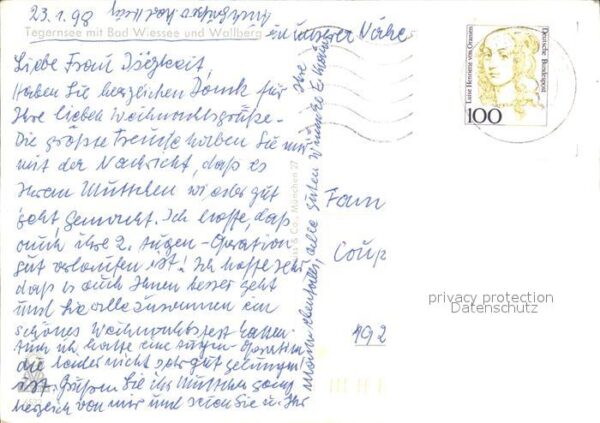 23.1.98
Tegernsee mit Bad Wiessee und Wallberg
in unserer Nähe
Liebe Frau
Haben Sie herzlichen Dank für
Ihre lieben Weihnachtsgrüße.
Die größte Freude haben Sie mir
mit der Nachricht, daß es
Ihrem Muttchen wieder gut
geht, gemacht. Ich hoffe, daß
auch ihre 2. Augen-Operation
gut verlaufen ist! Ich hoffe sehr
daß es auch Ihnen besser geht
und Sie alle zusammen ein
schönes Weihnachtsfest hatten.
Auch ich hatte eine Augen-Operation
die leider nicht sehr gut gelungen
ist. Grüßen Sie ihr Muttchen ganz
herzlich von mir und seien Sie u. Ihr
alle guten Wünsche
Ihre
& Co., München 27
Fam
Coup
192
Luise Henriette von Oranien
Deutsche Bundespost
100
privacy protection
Datenschutz